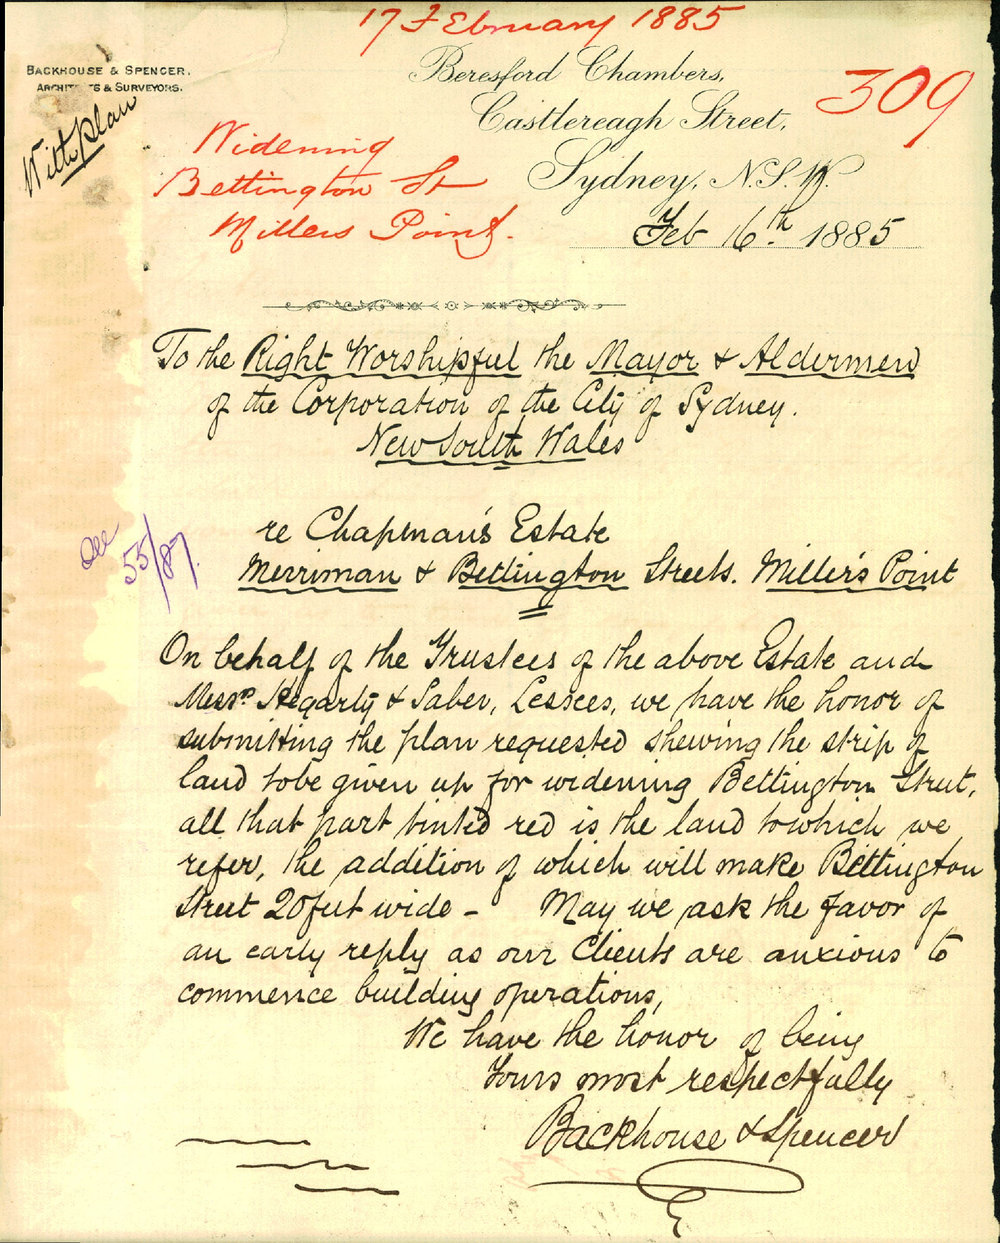 17 February 1885
BACKHOUSE & SPENCER,
ARCHITECTS & SURVEYORS.
Beresford Chambers,
Castlereagh Street,
Sydney, N.S.W.
309
With plan
Widening
Bettington St
Millers Point.
Feb 16th 1885
To the Right Worshipful the Mayor & Aldermen
of the Corporation of the City of Sydney.
New South Wales
re Chapman's Estate
Merriman & Bettington Streets. Miller's Point
55/87.
On behalf of the Trustees of the above Estate and
Messrs Hegarty & Saber, Lessees, we have the honor of
submitting the plan requested shewing the strip of
land to be given up for widening Bettington Street,
all that part tinted red is the land to which we
refer, the addition of which will make Bettington
Street 20 feet wide - May we ask the favor of
an early reply as our Clients are anxious to
commence building operations,
We have the honor of being
Yours most respectfully
Backhouse & Spencer